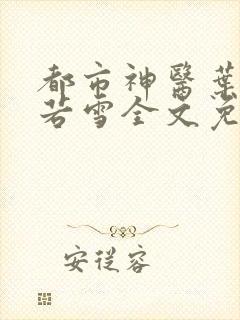 都市神醫葉
若雪全文免
安從容